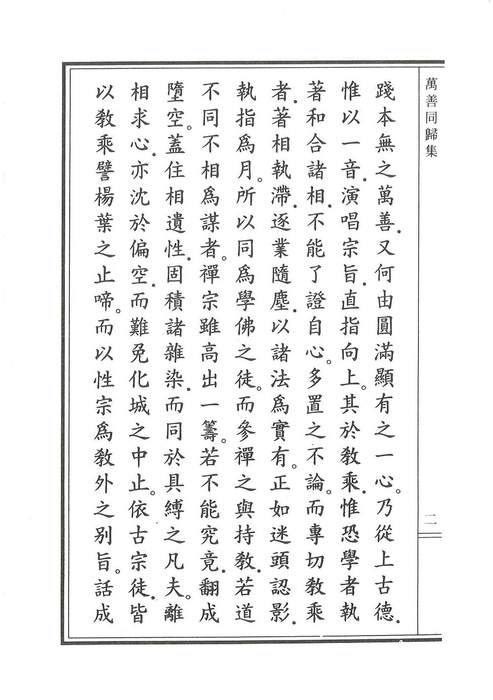 萬善同歸集
二
踐本無之萬善．又何由圓滿顯有之一心。乃從上古德．
惟以一音．演唱宗旨．直指向上。其於教乘．惟恐學者執
著和合諸相．不能了證自心。多置之不論。而專切教乘
者．著相執滯．逐業隨塵．以諸法為實有。正如迷頭認影．
執指為月。所以同為學佛之徒。而參禪之與持教．若道
不同不相為謀者。禪宗雖高出一籌。若不能究竟．翻成
墮空。蓋住相遺性．固積諸雜染．而同於具縛之凡夫。離
相求心．亦沈於偏空．而難免化城之中止。依古宗徒．皆
以教乘譬楊葉之止啼。而以性宗為教外之別旨。話成